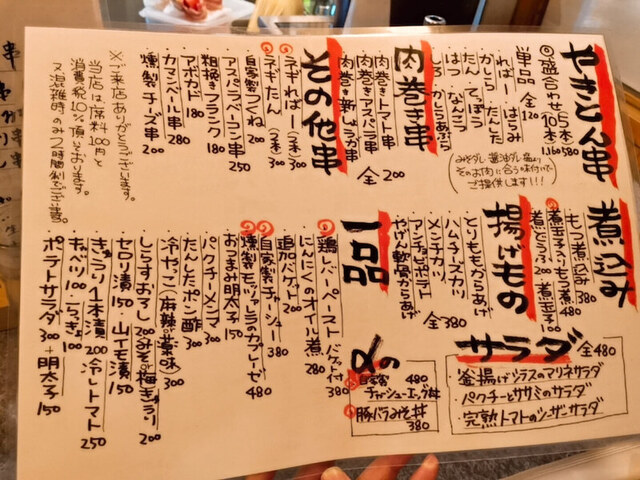 やきとん串
◎盛合わせ 5本 580
10本 1,160
単品 全120
・ればー ・はらみ
・かしら ・たんした
・たん ・てっぽう
・はつ ・なんこつ
・しろ ・かしらあぶら
(みそダレ・醤油ダレ・塩より
そのお肉に合う味付けで
ご提供します!!!)
肉巻き串
・肉巻きトマト串
・肉巻きアスパラ串
・肉巻き新しょうが串
全200
その他串
・ネギればー(2本)300
・ネギたん(2本)300
・自家製つくね 200
・アスパラベーコン串 250
・粗挽きフランク 180
・アボカド 180
・カマンベール串 280
・燻製チーズ串 200
※ご来店ありがとうございます。
当店は席料100円と
消費税10%頂いております。
又混雑時のみ2時間制でございます。
煮込み
・もつ煮込み 380
・煮玉子入りもつ煮 480
・煮とうふ 200 ・煮玉子 100
揚げもの
・とりももからあげ
・ハムチーズカツ
・メンチカツ
・アンチョビポテト
・やげん軟骨からあげ
全380
一品
・鶏レバーペースト バゲット付 380
・にんにくのオイル煮 280
・追加バゲット 200
・自家製チャーシュー 380
・燻製モッツァラのカプレーゼ 480
・おつまみ明太子 150
・パクチーメンマ 300
・たんしたポン酢 300
・冷やっこ(麻辣or薬味) 300
・しらすおろし 200 ・みそ梅きゅうり 200
・セロリ漬 150 ・山イモ漬 150
・きゅうり1本漬 200 ・冷しトマト 250
・キャベツ 100 ・らっきょ 100
・ポテトサラダ 300 +明太子 150
サラダ 全480
・釜揚げシラスのマリネサラダ
・パクチーとササミのサラダ
・完熟トマトのシーザーサラダ
〆の
・自家製チャーシューエッグ丼 480
・豚バラみそ丼 380